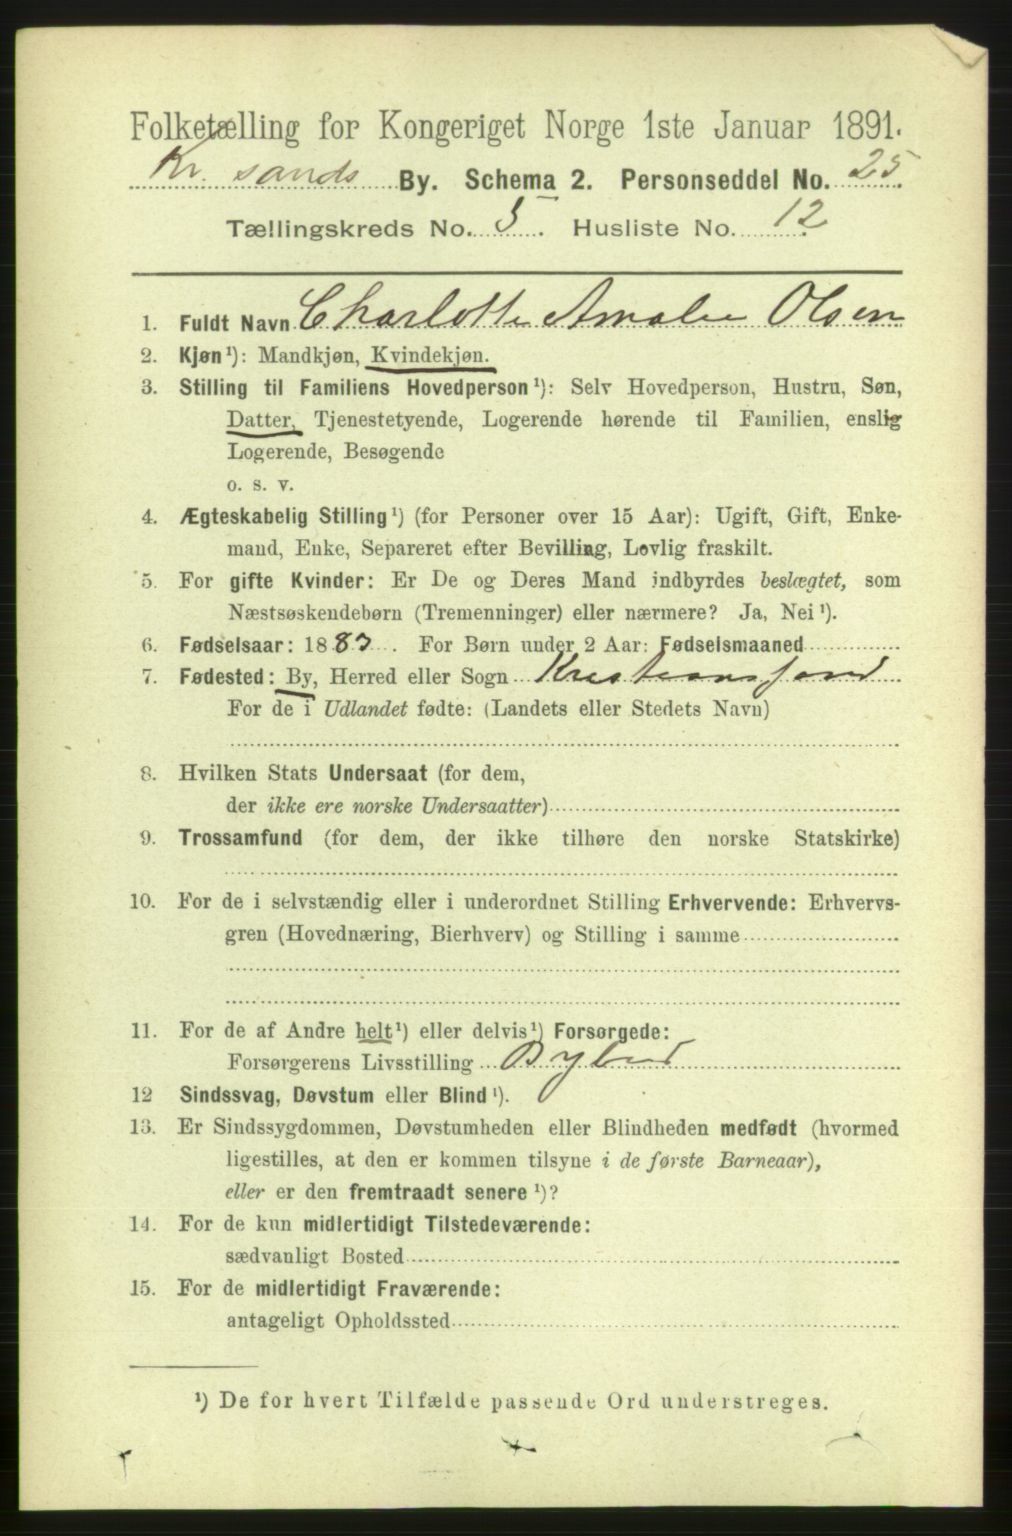 Folketælling for Kongeriget Norge 1ste Januar 1891.
Kr. sands By. Schema 2. Personseddel No. 25
Tællingskreds No. 5. Husliste No. 12
1. Fuldt Navn Charlotte Amalie Olsen
2. Kjøn¹): Mandkjøn, Kvindekjøn.
3. Stilling til Familiens Hovedperson¹): Selv Hovedperson, Hustru, Søn,
Datter, Tjenestetyende, Logerende hørende til Familien, enslig
Logerende, Besøgende
o. s. v.
4. Ægteskabelig Stilling¹) (for Personer over 15 Aar): Ugift, Gift, Enke-
mand, Enke, Separeret efter Bevilling, Lovlig fraskilt.
5. For gifte Kvinder: Er De og Deres Mand indbyrdes beslægtet, som
Næstsøskendebørn (Tremenninger) eller nærmere? Ja, Nei¹).
6. Fødselsaar: 1883. For Børn under 2 Aar: Fødselsmaaned
7. Fødested: By, Herred eller Sogn Kristianssand
For de i Udlandet fødte: (Landets eller Stedets Navn)
8. Hvilken Stats Undersaat (for dem,
der ikke ere norske Undersaatter)
9. Trossamfund (for dem, der ikke tilhøre den norske Statskirke)
10. For de i selvstændig eller i underordnet Stilling Erhvervende: Erhvervs-
gren (Hovednæring, Bierhverv) og Stilling i samme
11. For de af Andre helt¹) eller delvis¹) Forsørgede:
Forsørgerens Livsstilling Bybud
12 Sindssvag, Døvstum eller Blind¹).
13. Er Sindssygdommen, Døvstumheden eller Blindheden medfødt (hvormed
ligestilles, at den er kommen tilsyne i de første Barneaar),
eller er den fremtraadt senere¹)?
14. For de kun midlertidigt Tilstedeværende:
sædvanligt Bosted
15. For de midlertidigt Fraværende:
antageligt Opholdssted
¹) De for hvert Tilfælde passende Ord understreges.